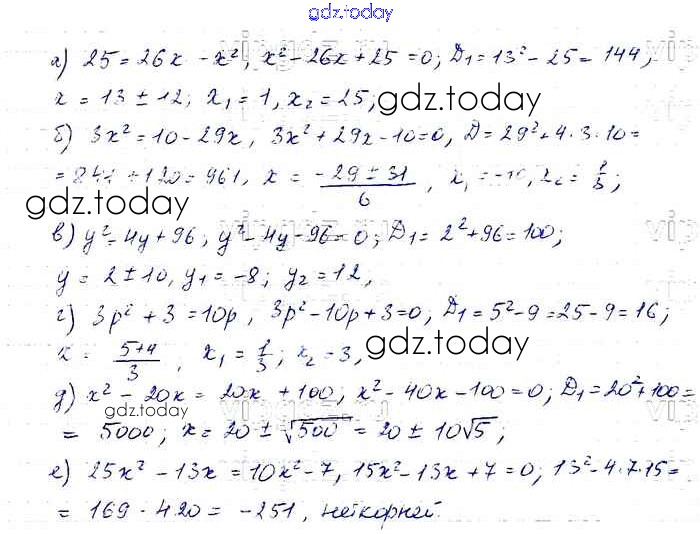 gdz.today
а) 25 = 26x - x², x² - 26x + 25 = 0; D₁ = 13² - 25 = 144;
x = 13 ± 12; x₁ = 1, x₂ = 25; gdz.today
б) 3x² = 10 - 29x, 3x² + 29x - 10 = 0, D = 29² + 4·3·10 =
= 841 + 120 = 961, x = (-29 ± 31)/6, x₁ = -10, x₂ = 1/3;
gdz.today
в) y² = 4y + 96; y² - 4y - 96 = 0; D₁ = 2² + 96 = 100;
y = 2 ± 10, y₁ = -8; y₂ = 12,
г) 3p² + 3 = 10p, 3p² - 10p + 3 = 0; D₁ = 5² - 9 = 25 - 9 = 16;
x = (5+4)/3, x₁ = 1/3; x₂ = 3, gdz.today
д) x² - 20x = 20x + 100; x² - 40x - 100 = 0; D₁ = 20² + 100 =
gdz.today
= 5000; x = 20 ± √500 = 20 ± 10√5;
е) 25x² - 13x = 10x² - 7, 15x² - 13x + 7 = 0; 13² - 4·7·15 =
= 169 - 420 = -251, нет корней.